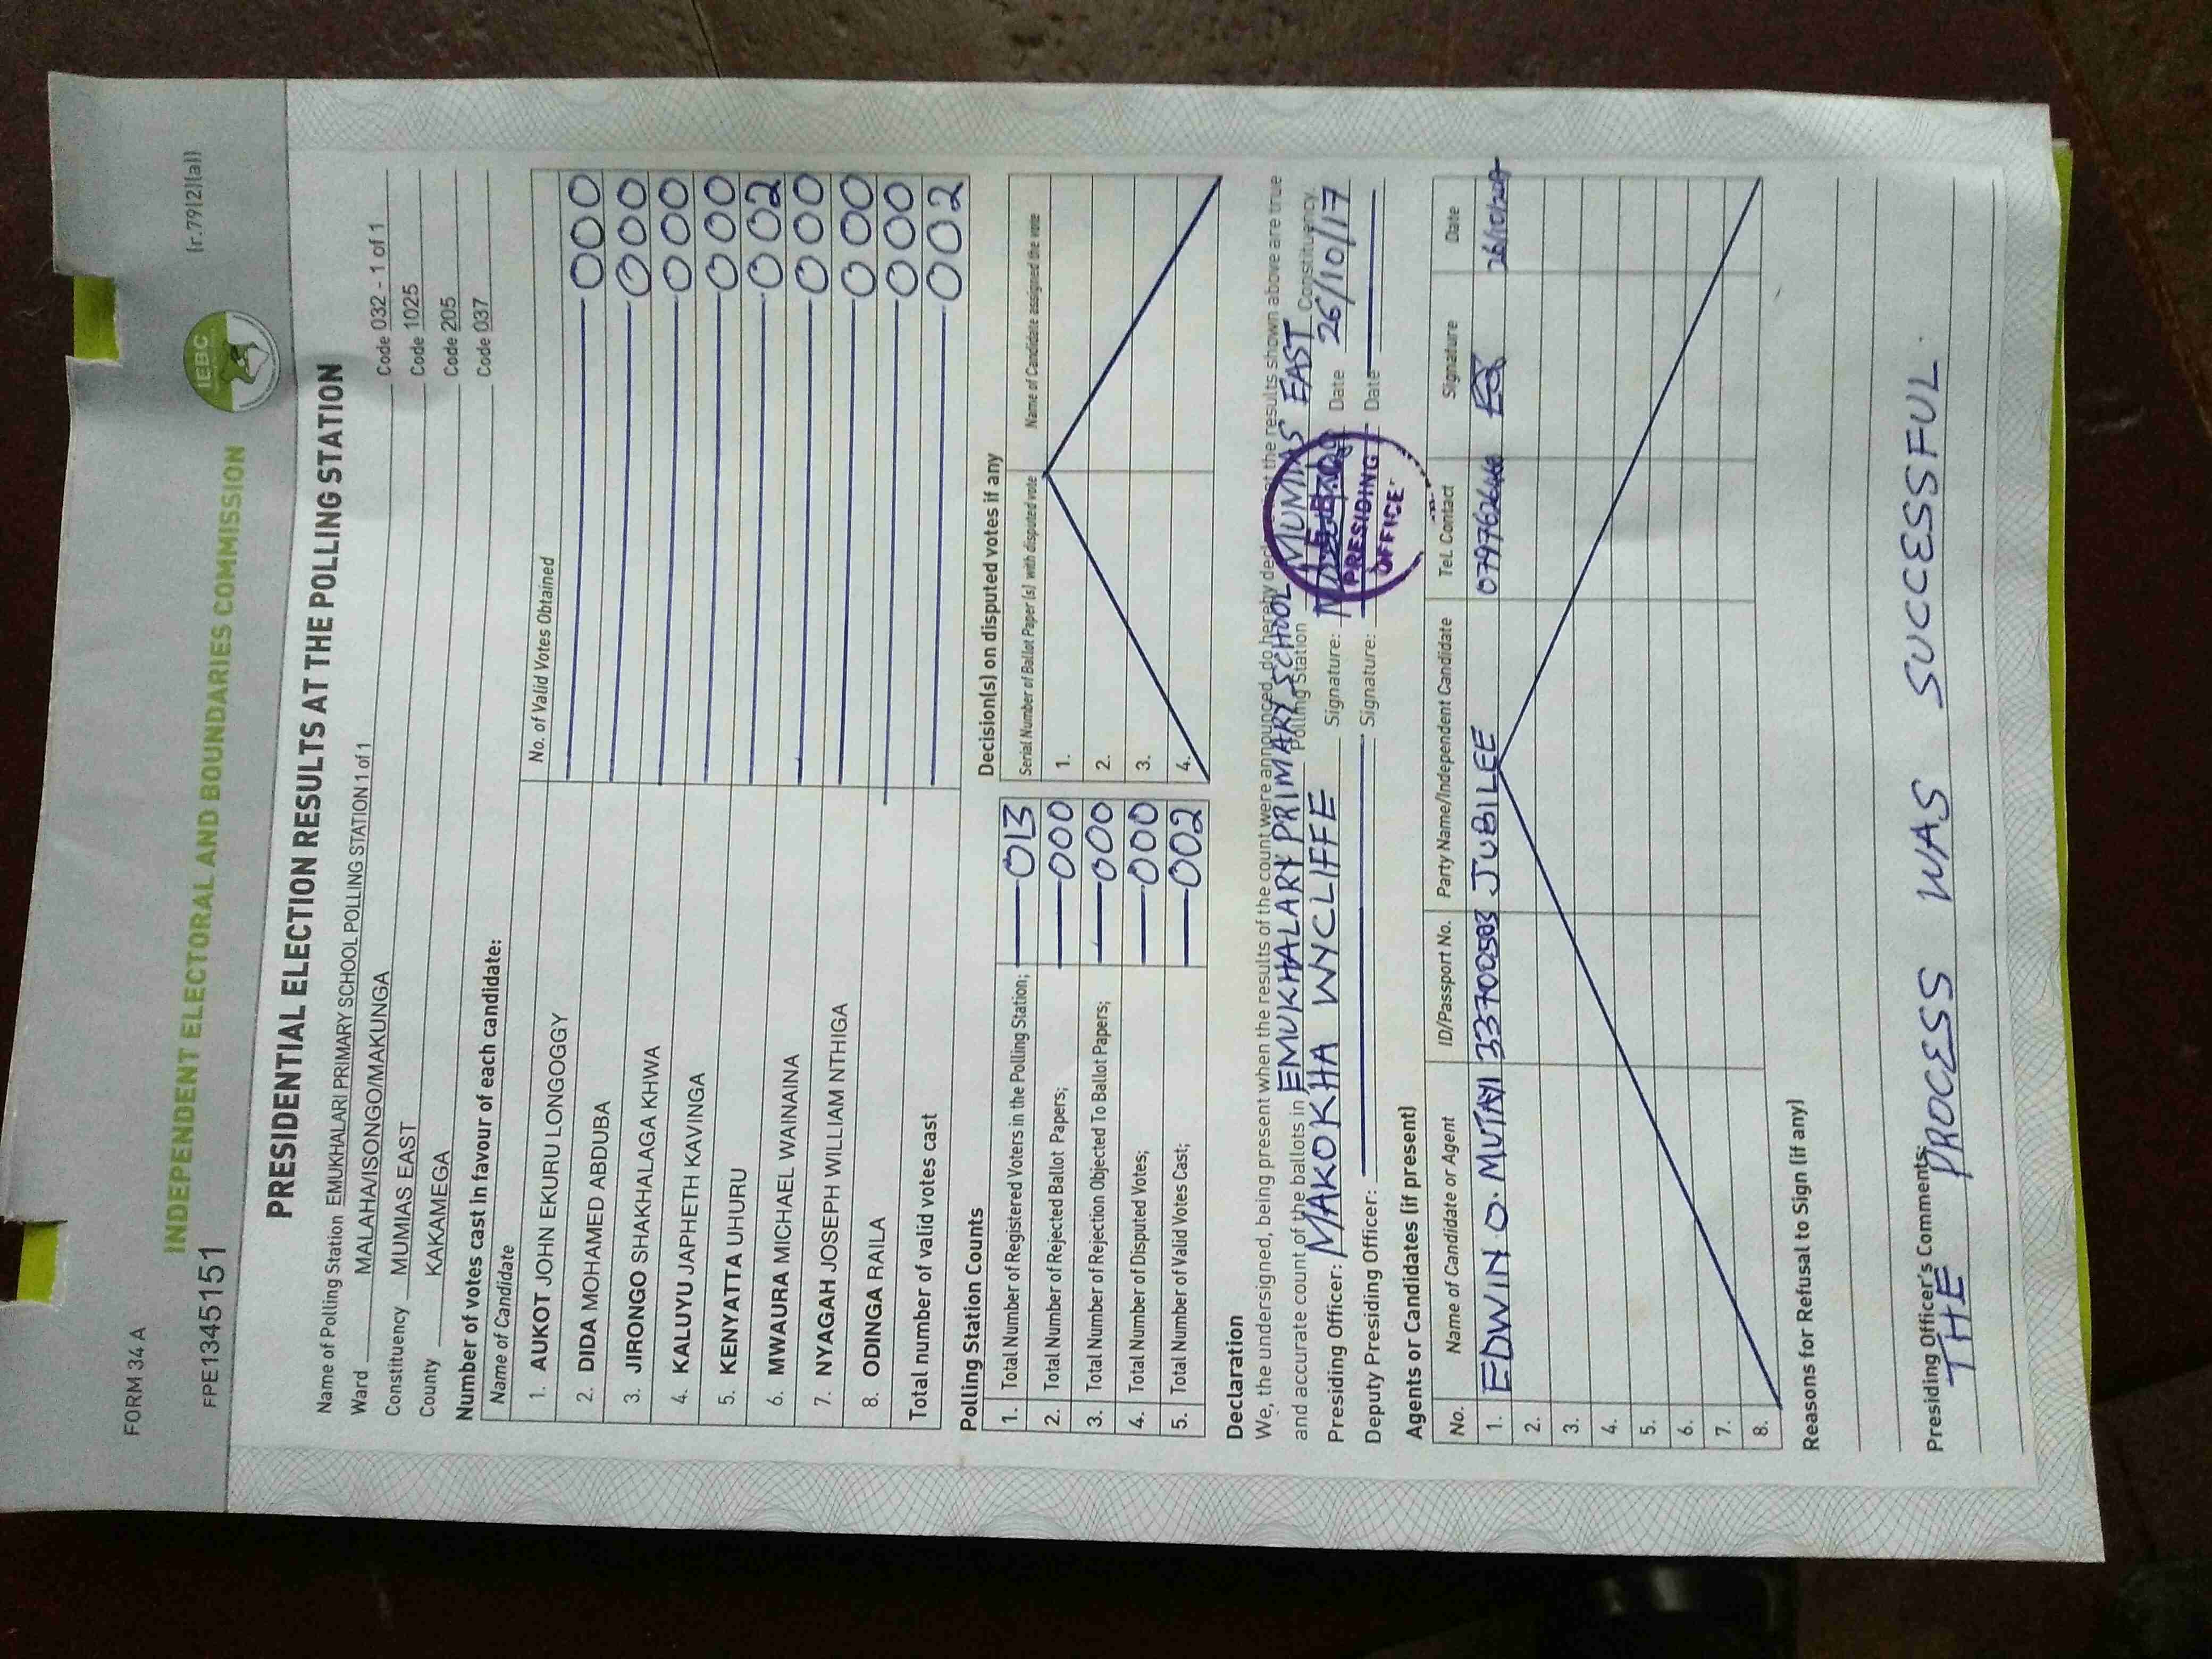 FORM 34 A
(r.79(2)(a))
FPE1345151
INDEPENDENT ELECTORAL AND BOUNDARIES COMMISSION
IEBC
PRESIDENTIAL ELECTION RESULTS AT THE POLLING STATION
Name of Polling Station EMUKHALARI PRIMARY SCHOOL POLLING STATION 1 of 1 Code 032 - 1 of 1
Ward MALAHA/ISONGO/MAKUNGA Code 1025
Constituency MUMIAS EAST Code 205
County KAKAMEGA Code 037
Number of votes cast in favour of each candidate:
Name of Candidate No. of Valid Votes Obtained
1. AUKOT JOHN EKURU LONGOGGY 000
2. DIDA MOHAMED ABDUBA 000
3. JIRONGO SHAKHALAGA KHWA 000
4. KALUYU JAPHETH KAVINGA 000
5. KENYATTA UHURU 002
6. MWAURA MICHAEL WAINAINA 000
7. NYAGAH JOSEPH WILLIAM NTHIGA 000
8. ODINGA RAILA 000
Total number of valid votes cast 002
Polling Station Counts
1. Total Number of Registered Voters in the Polling Station; 013
2. Total Number of Rejected Ballot Papers; 000
3. Total Number of Rejection Objected To Ballot Papers; 000
4. Total Number of Disputed Votes; 000
5. Total Number of Valid Votes Cast; 002
Decision(s) on disputed votes if any
Serial Number of Ballot Paper (s) with disputed vote Name of Candidate assigned the vote
1.
2.
3.
4.
Declaration
We, the undersigned, being present when the results of the count were announced, do hereby declare that the results shown above are true
and accurate count of the ballots in EMUKHALARY PRIMARY SCHOOL Polling Station MUMIAS EAST Constituency.
Presiding Officer: MAKOKHA WYCLIFFE Signature: Date 26/10/17
Deputy Presiding Officer: Signature: Date
PRESIDING
OFFICE
Agents or Candidates (if present)
No. Name of Candidate or Agent ID/Passport No. Party Name/Independent Candidate Tel. Contact Signature Date
1. EDWIN O. MUTAYI 33700583 JUBILEE 26/10/2017
2.
3.
4.
5.
6.
7.
8.
Reasons for Refusal to Sign (if any)
Presiding Officer's Comments:
THE PROCESS WAS SUCCESSFUL.